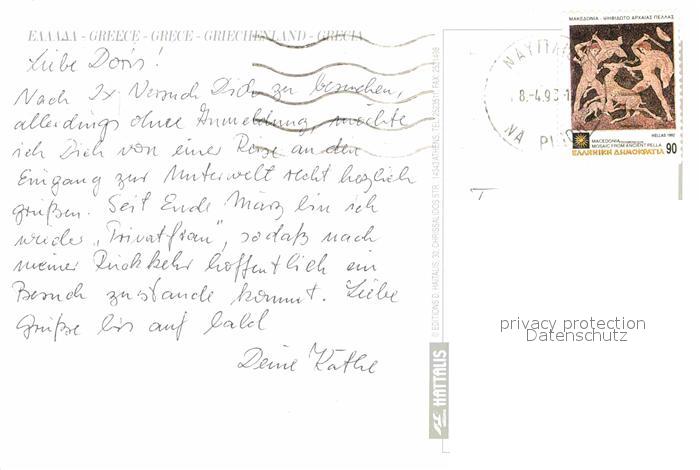 ΕΛΛΑΔΑ - GREECE - GRECE - GRIECHENLAND - GRECIA
Liebe Doris!
Nach 2x Versuch Dich zu besuchen,
allerdings ohne Anmeldung, möchte
ich Dich von einer Reise an den
Eingang zur Unterwelt recht herzlich
grüßen. Seit Ende März bin ich
wieder „Privatfrau", sodaß nach
meiner Rückkehr hoffentlich ein
Besuch zustande kommt. Liebe
Grüße bis auf bald
Deine Käthe
© EDITIONS D. HAITALIS
HAITALIS
ΝΑΥΠΛ
8.-4.93-1
NA PLIO
ΜΑΚΕΔΟΝΙΑ - ΨΗΦΙΔΩΤΟ ΑΡΧΑΙΑΣ ΠΕΛΛΑΣ
HELLAS 1992
MACEDONIA
MOSAIC FROM ANCIENT PELLA
ΕΛΛΗΝΙΚΗ ΔΗΜΟΚΡΑΤΙΑ 90
privacy protection
Datenschutz